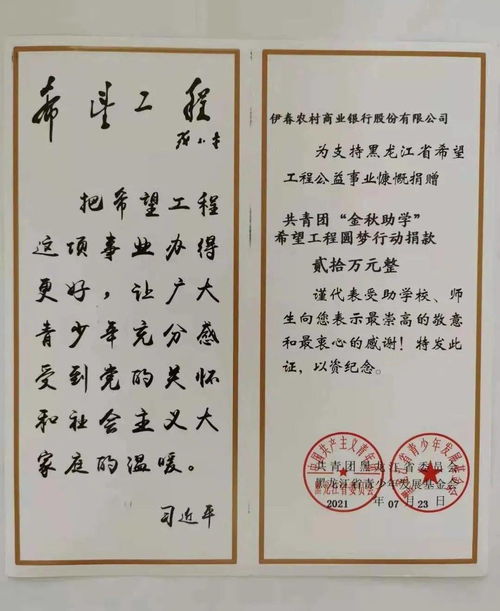 希望工程
邓小平
把希望工程
这项事业办得
更好，让广大
青少年充分感
受到党的关怀
和社会主义大
家庭的温暖。
习近平
伊春农村商业银行股份有限公司
为支持黑龙江省希望
工程公益事业慷慨捐赠
共青团“金秋助学”
希望工程圆梦行动捐款
贰拾万元整
谨代表受助学校、师
生向您表示最崇高的敬意
和最衷心的感谢！特发此
证，以资纪念。
共青团黑龙江省委员会
黑龙江省青少年发展基金会
2021 年 07 月 23 日